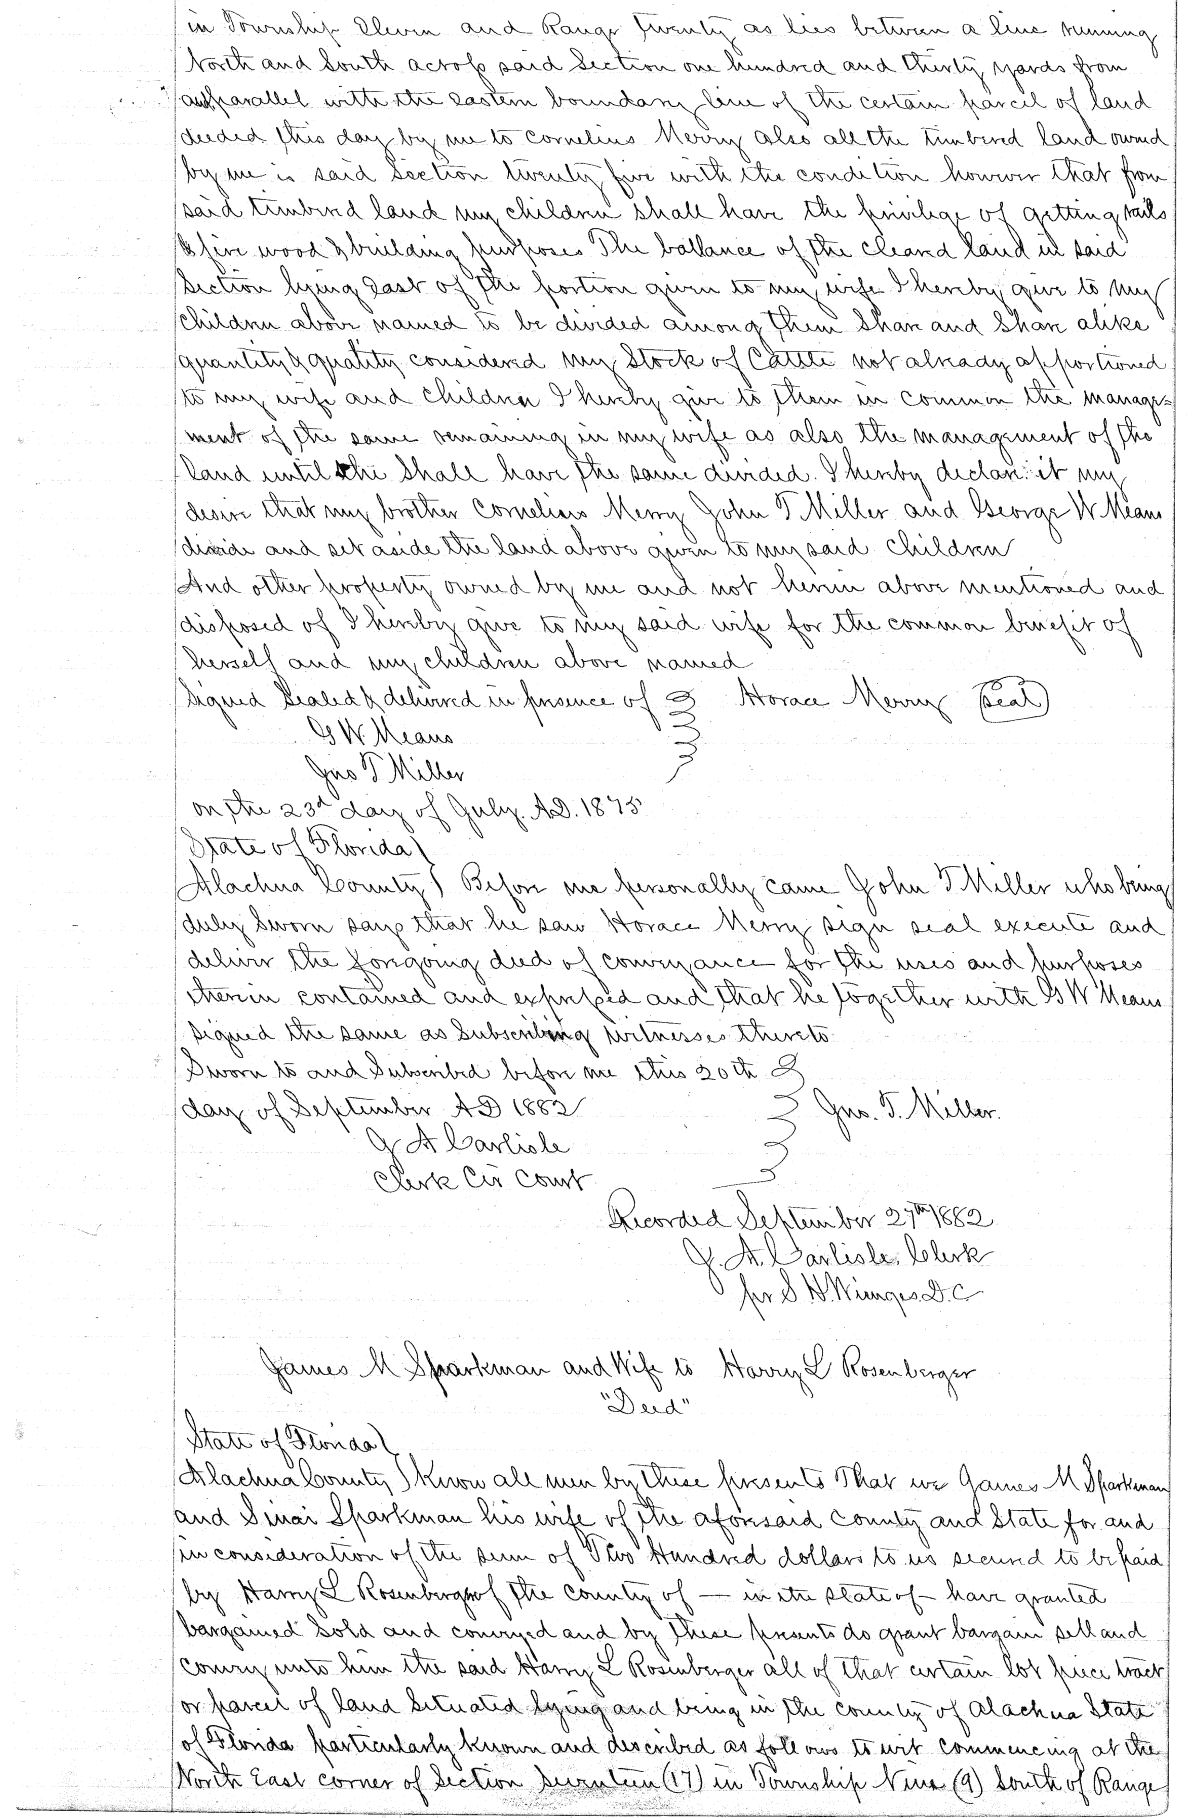 in Township Eleven and Range twenty as lies between a line running
North and South across said Section one hundred and thirty yards from
and parallel with the eastern boundary line of the certain parcel of land
deeded this day by me to Cornelius Merry also all the timbered land owned
by me in said Section twenty five with the condition however that from
said timbered land my children shall have the privilege of getting rails
& fire wood & building purposes The ballance of the cleared land in said
Section lying East of the portion given to my wife I hereby give to my
children above named to be divided among them Share and Share alike
quantity & quality considered my Stock of Cattle not already apportioned
to my wife and children I hereby give to them in common the manage=
ment of the same remaining in my wife as also the management of the
land until she shall have the same divided. I hereby declare it my
desire that my brother Cornelius Merry John T Miller and George W Means
divide and set aside the land above given to my said children
And other property owned by me and not herein above mentioned and
disposed of I hereby give to my said wife for the common benefit of
herself and my children above named
Signed Sealed & delivered in presence of Horace Merry (Seal)
G W Means
Jno T Miller
on the 23d day of July. A.D. 1875
State of Florida
Alachua County Before me personally came John T Miller who being
duly Sworn says that he saw Horace Merry sign seal execute and
deliver the foregoing deed of conveyance for the uses and purposes
therein contained and expressed and that he together with G W Means
signed the same as Subscribing witnesses thereto
Sworn to and Subscribed before me this 20th
day of September AD 1882 Jno. T. Miller.
J A Carlisle
Clerk Cir Court
Recorded September 27th 1882
J. A. Carlisle, Clerk
pr S. H. Wienges D.C
James M Sparkman and Wife to Harry L Rosenberger
"Deed"
State of Florida
Alachua County Know all men by these presents That we James M Sparkman
and Sinai Sparkman his wife of the aforesaid County and State for and
in consideration of the sum of Two Hundred dollars to us secured to be paid
by Harry L Rosenberger of the county of — in the state of — have granted
bargained Sold and conveyed and by these presents do grant bargain sell and
convey unto him the said Harry L Rosenberger all of that certain lot piece tract
or parcel of land Situated lying and being in the county of Alachua State
of Florida particularly known and described as follows to wit commencing at the
North East corner of Section Seventeen (17) in Township Nine (9) South of Range